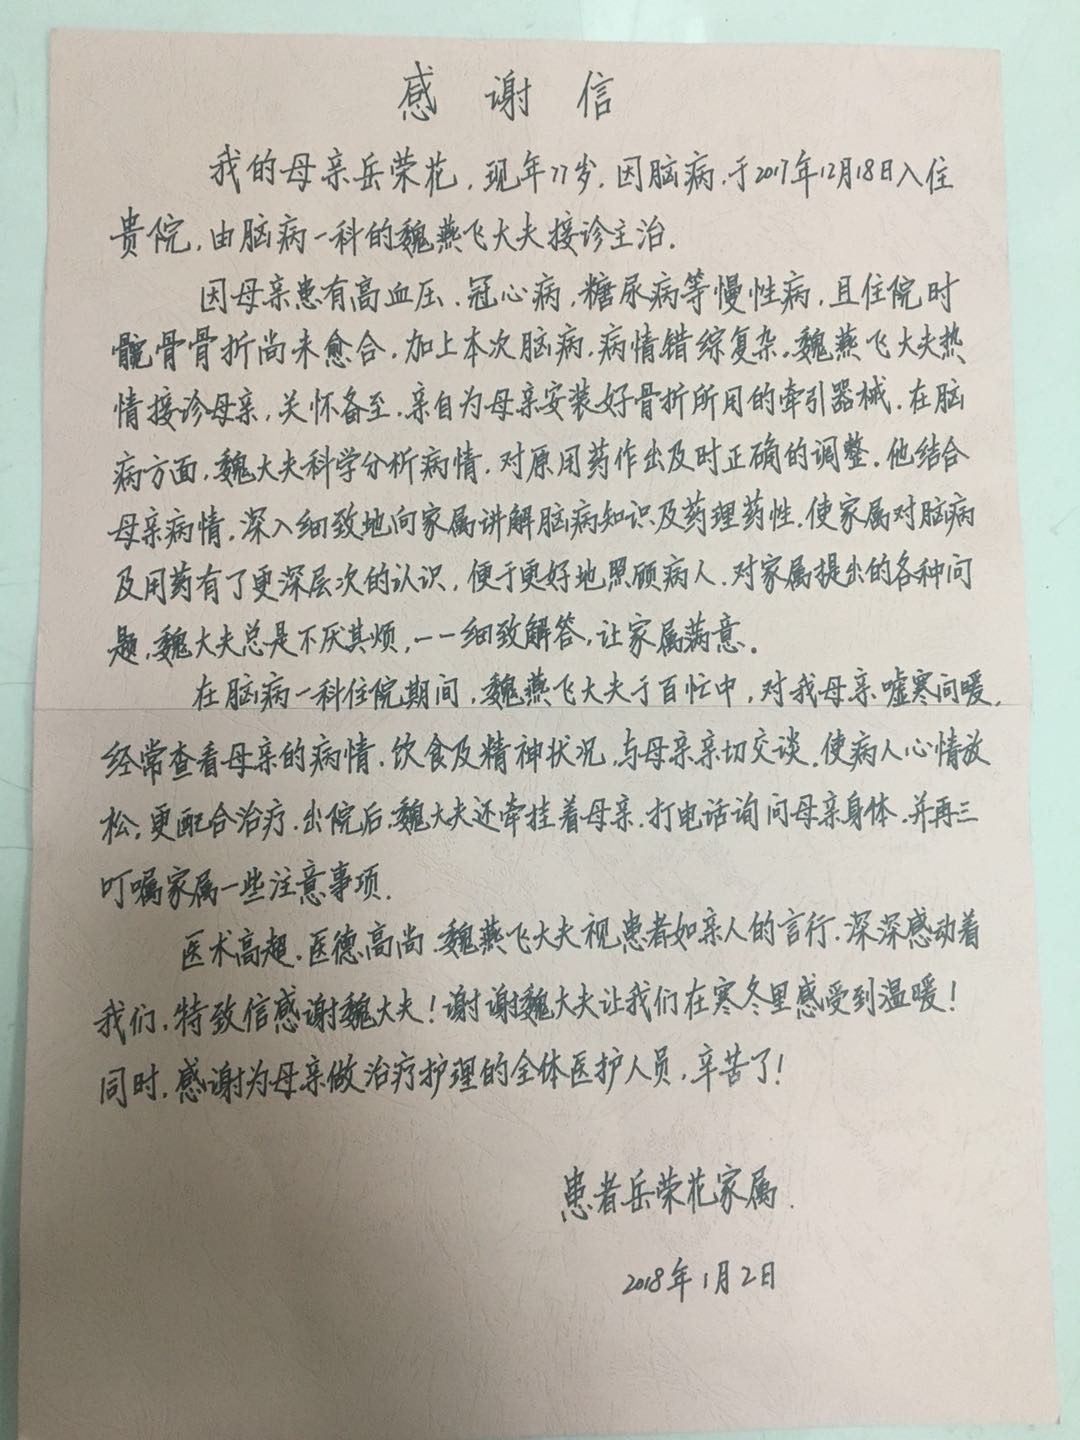 感谢信
我的母亲岳荣花，现年77岁，因脑病，于2017年12月18日入住
贵院，由脑病一科的魏燕飞大夫接诊主治。
因母亲患有高血压、冠心病，糖尿病等慢性病，且住院时
髋骨骨折尚未愈合，加上本次脑病，病情错综复杂。魏燕飞大夫热
情接诊母亲，关怀备至，亲自为母亲安装好骨折所用的牵引器械。在脑
病方面，魏大夫科学分析病情，对原用药作出及时正确的调整。他结合
母亲病情，深入细致地向家属讲解脑病知识及药理药性，使家属对脑病
及用药有了更深层次的认识，便于更好地照顾病人。对家属提出的各种问
题，魏大夫总是不厌其烦，一一细致解答，让家属满意。
在脑病一科住院期间，魏燕飞大夫于百忙中，对我母亲嘘寒问暖，
经常查看母亲的病情、饮食及精神状况，与母亲亲切交谈，使病人心情放
松，更配合治疗。出院后，魏大夫还牵挂着母亲，打电话询问母亲身体，并再三
叮嘱家属一些注意事项。
医术高超，医德高尚，魏燕飞大夫视患者如亲人的言行，深深感动着
我们，特致信感谢魏大夫！谢谢魏大夫让我们在寒冬里感受到温暖！
同时，感谢为母亲做治疗护理的全体医护人员，辛苦了！
患者岳荣花家属．
2018年1月2日